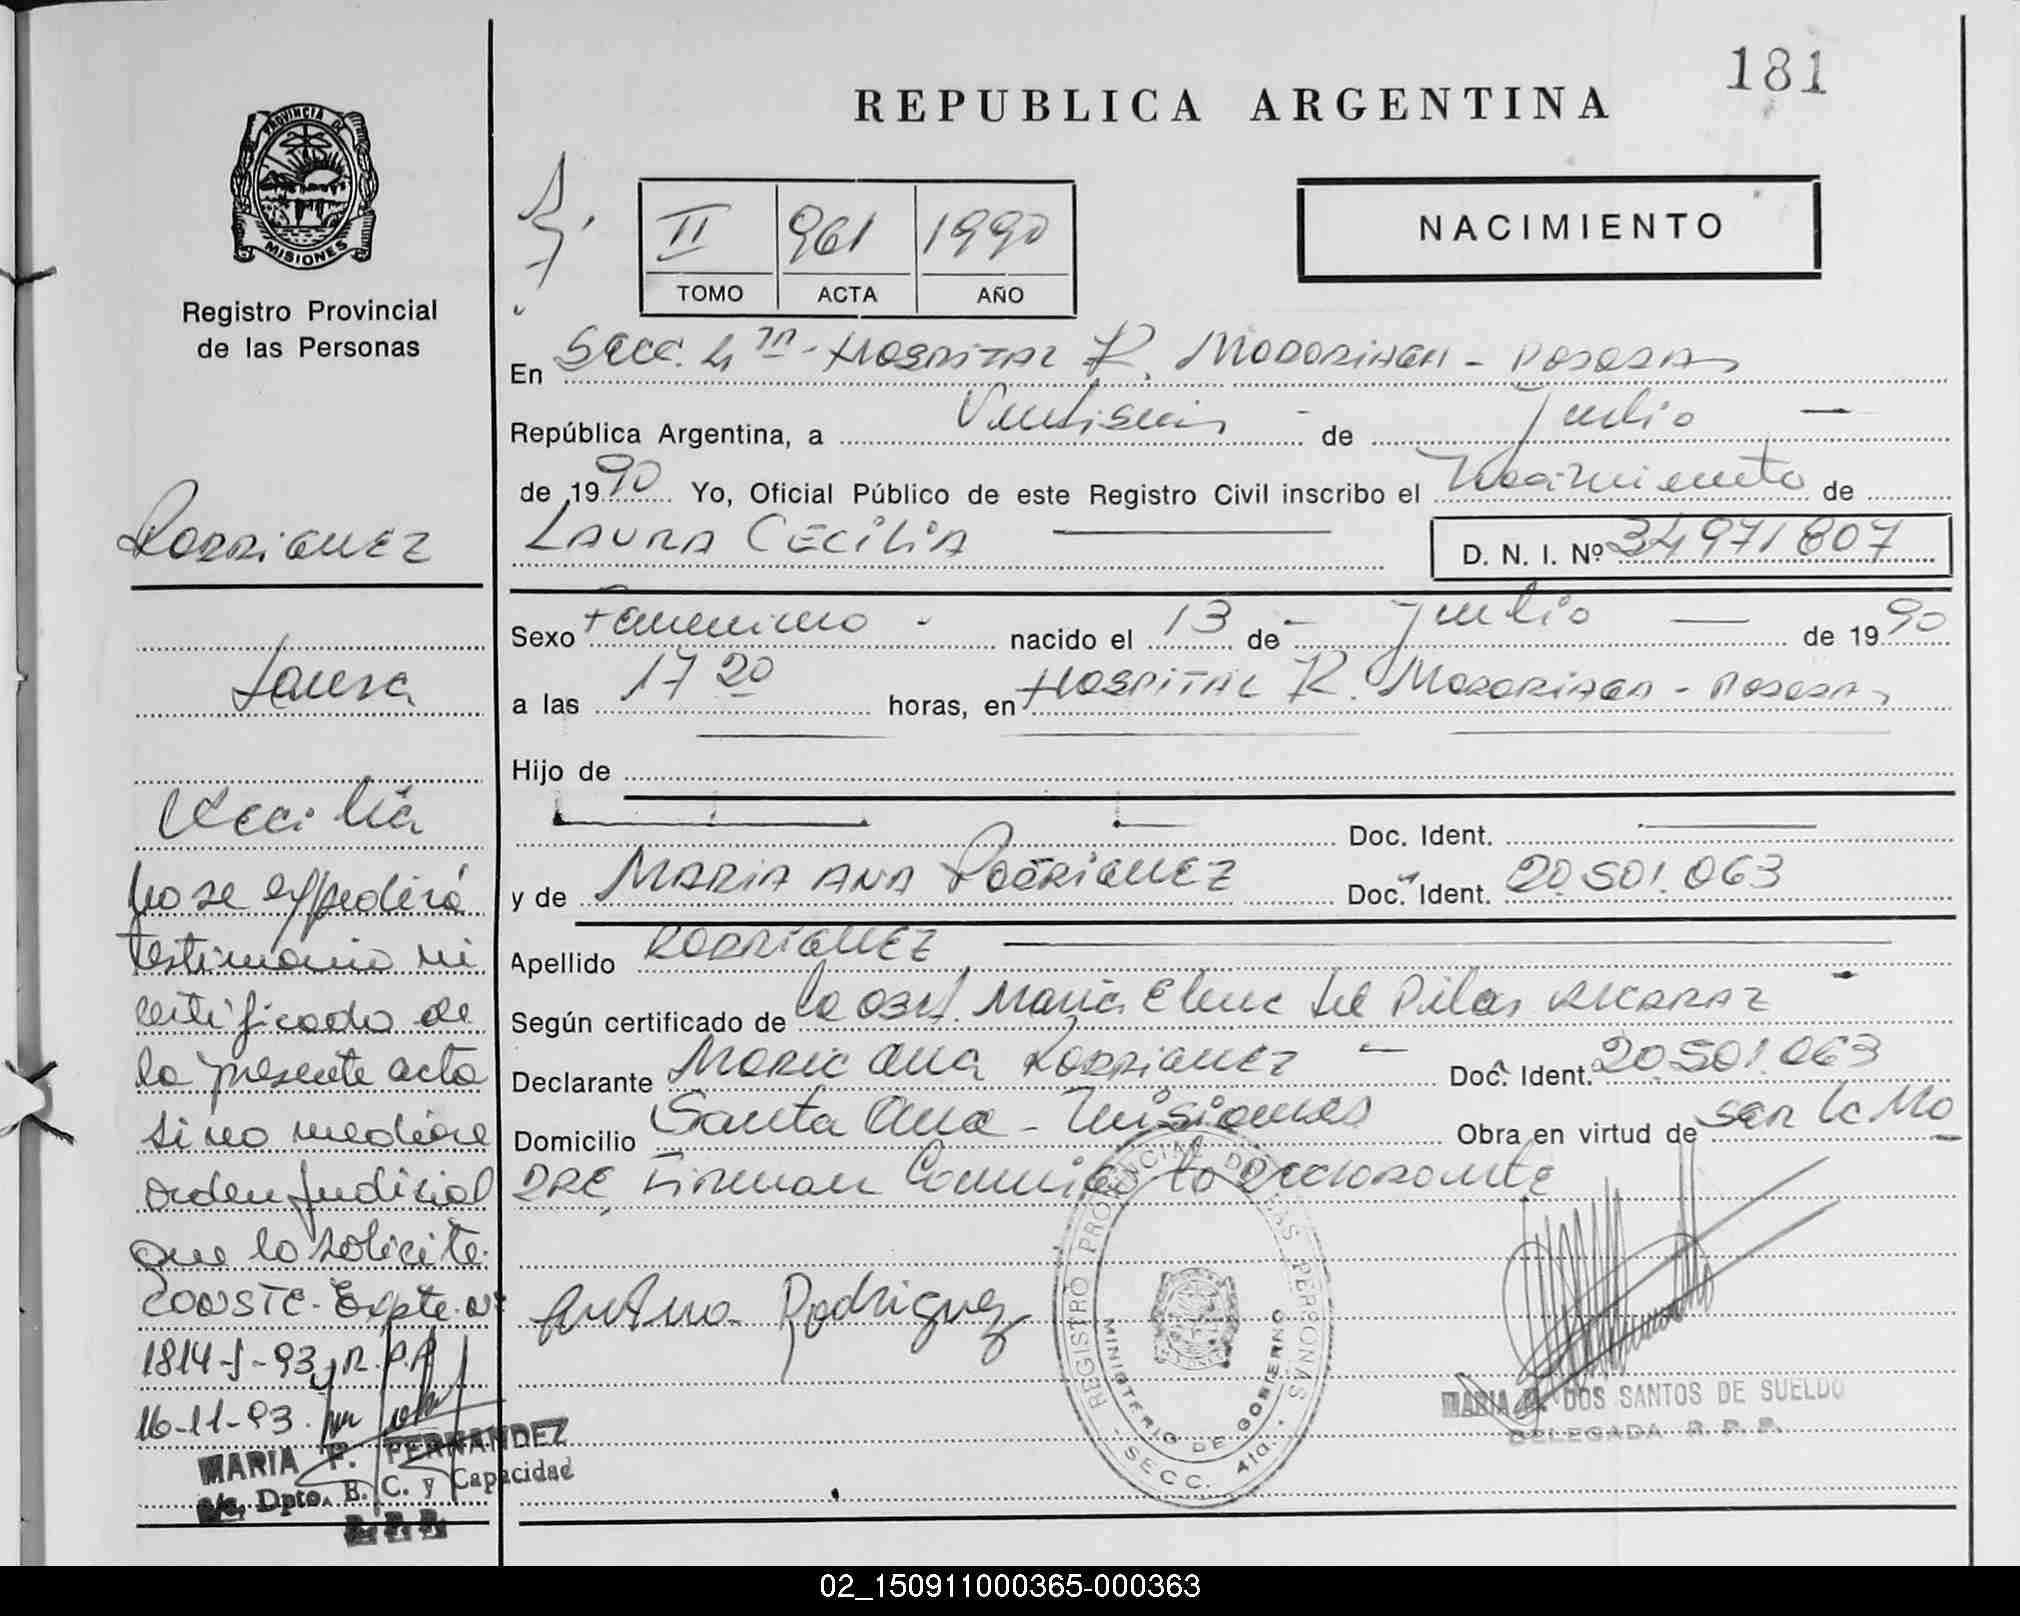 181
REPUBLICA ARGENTINA
PROVINCIA DE
MISIONES
Registro Provincial
de las Personas
II 961 1990
TOMO ACTA AÑO
NACIMIENTO
En Secc. 4ta - Hospital R. Madariaga - Posadas
República Argentina, a Veintiseis - de Julio -
de 1990 Yo, Oficial Público de este Registro Civil inscribo el Nacimiento de
LAURA CECILIA D. N. I. Nº 34971807
Sexo Femenino - nacido el 13 de - Julio - de 1990
a las 17 20 horas, en Hospital R. Madariaga - Posadas
Hijo de
Doc. Ident.
y de MARIA ANA RODRIGUEZ Doc. Ident. 20.501.063
Apellido RODRIGUEZ
Según certificado de la Obst. Maria Elena del Pilar ALCARAZ
Declarante Maria Ana RODRIGUEZ - Doc. Ident. 20.501.063
Domicilio Santa Ana - Misiones Obra en virtud de ser la Ma
DRE Firman Conmigo la Declarante
Rodriguez
REGISTRO PROVINCIAL DE LAS PERSONAS
MINISTERIO DE GOBIERNO
- SECC. 4ta. -
MARIA DOS SANTOS DE SUELDO
DELEGADA R. P. P.
RODRIGUEZ
Laura
Cecilia
No se expedirá
testimonio ni
certificado de
la presente acta
si no mediare
orden judicial
que lo solicite.
CONSTE. Expte. Nº
1814-J-93 y R.P.P.
16-11-93.
MARIA F. FERNANDEZ
a/c. Dpto. E. C. y Capacidad
R. P. P.
02_150911000365-000363